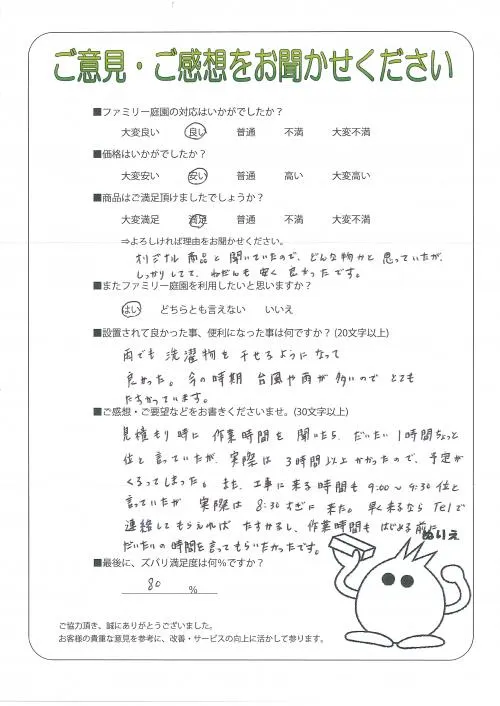 ご意見・ご感想をお聞かせください
■ファミリー庭園の対応はいかがでしたか?
大変良い 良い 普通 不満 大変不満
■価格はいかがでしたか?
大変安い 安い 普通 高い 大変高い
■商品はご満足頂けましたでしょうか?
大変満足 満足 普通 不満 大変不満
⇒よろしければ理由をお聞かせください。
オリジナル商品と聞いていたので、どんな物かと思っていたが、
しっかりしてて、ねだんも安く良かったです。
■またファミリー庭園を利用したいと思いますか?
はい どちらとも言えない いいえ
■設置されて良かった事、便利になった事は何ですか?(20文字以上)
雨でも洗濯物を干せるようになって
良かった。今の時期台風や雨が多いのでとても
たすかっています。
■ご感想・ご要望などをお書きくださいませ。(30文字以上)
見積もり時に作業時間を聞いたら、だいたい1時間ちょっと
位と言っていたが、実際は3時間以上かかったので、予定が
くるってしまった。また、工事に来る時間も9:00〜9:30位と
言っていたが実際は8:30すぎに来た。早く来るならTelで
連絡してもらえればたすかるし、作業時間もはじめる前に
だいたいの時間を言ってもらいたかったです。
ぬりえ
■最後に、ズバリ満足度は何%ですか?
80 %
ご協力頂き、誠にありがとうございました。
お客様の貴重な意見を参考に、改善・サービスの向上に活かして参ります。